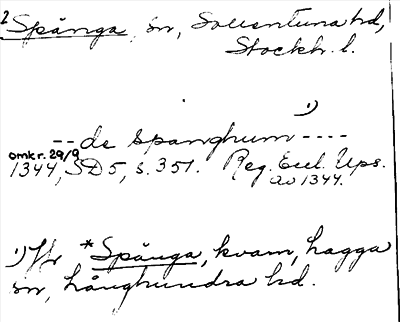 2 Spånga, sn, Sollentuna hd,
Stockh. l.
1)
-- de spanghum ----
omkr. 29/9
1344, SD 5, s. 351. Reg. Eccl. Ups.
av 1344.
1) Hr *Spånga, kvarn, Hagga
sn, Långhundra hd.